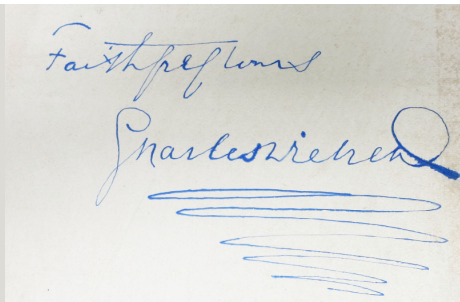 Faithfully yours
Charles Dickens